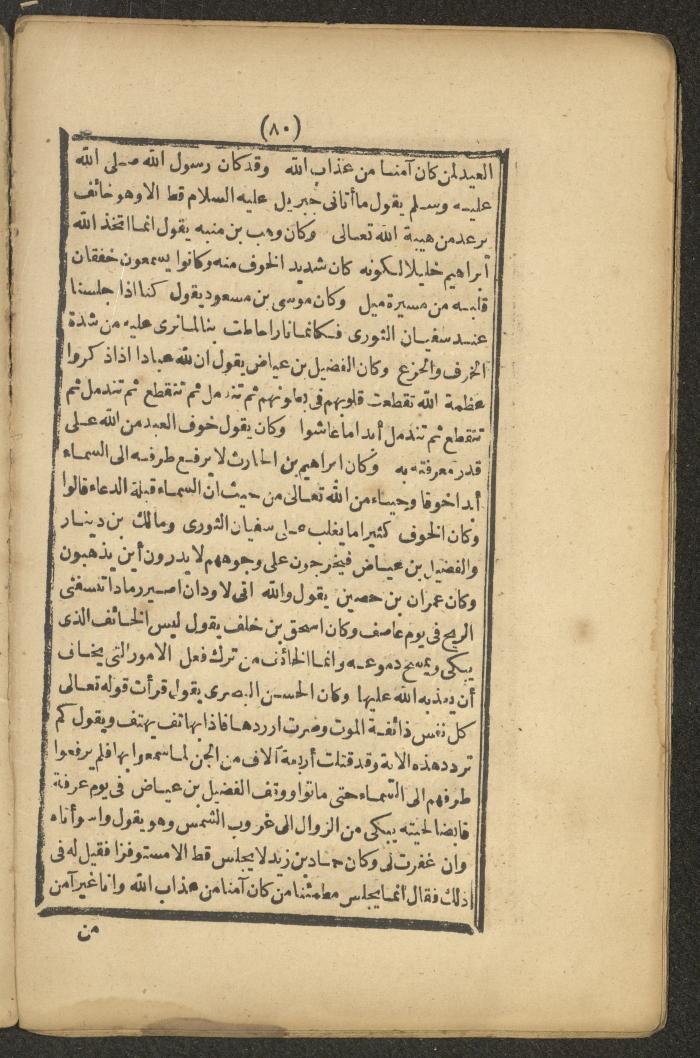 (٨٠)
العيد لمن كان آمنا من عذاب الله وقد كان رسول الله صلى الله
عليه وسلم يقول ما أتانى جبريل عليه السلام قط الا وهو خائف
يرعد من هيبة الله تعالى وكان وهب بن منبه يقول انما اتخذ الله
ابراهيم خليلا لكونه كان شديد الخوف منه وكانوا يسمعون خفقان
قلبه من مسيرة ميل وكان موسى بن مسعود يقول كنا اذا جلسنا
عند سفيان الثورى فكانما نار احاطت بنا لما نرى عليه من شدة
الخوف والجزع وكان الفضيل بن عياض يقول ان لله عبادا اذا ذكروا
عظمة الله تقطعت قلوبهم فى بطونهم ثم تندمل ثم تتقطع ثم تندمل ثم
تتقطع ثم تندمل أبدا ما عاشوا وكان يقول خوف العبد من الله على
قدر معرفته به وكان ابراهيم بن الحارث لا يرفع طرفه الى السماء
أبدا خوفا وحياء من الله تعالى من حيث ان السماء قبلة الدعاء قالوا
وكان الخوف كثيرا ما يغلب على سفيان الثورى ومالك بن دينار
والفضيل بن عياض فيخرجون على وجوههم لا يدرون أين يذهبون
وكان عمران بن حصين يقول والله انى لاود ان اصير رمادا تنسفنى
الريح فى يوم عاصف وكان اسحق بن خلف يقول ليس الخائف الذى
يبكى ويمسح دموعه وانما الخائف من ترك فعل الامور التى يخاف
أن يعذبه الله عليها وكان الحسن البصرى يقول قرأت قوله تعالى
كل نفس ذائقة الموت وصرت ارددها فاذا بهاتف يهتف ويقول كم
تردد هذه الآية وقد قتلت أربعة آلاف من الجن لما سمعوا بها فلم يرفعوا
طرفهم الى السماء حتى ماتوا ووقف الفضيل بن عياض فى يوم عرفة
قابضا لحيته يبكى من الزوال الى غروب الشمس وهو يقول واسوأتاه
وان غفرت لى وكان حماد بن زيد لا يجلس قط الا مستوفزا فقيل له فى
ذلك فقال انما يجلس مطمئنا من كان آمنا من عذاب الله وانا غير آمن
من